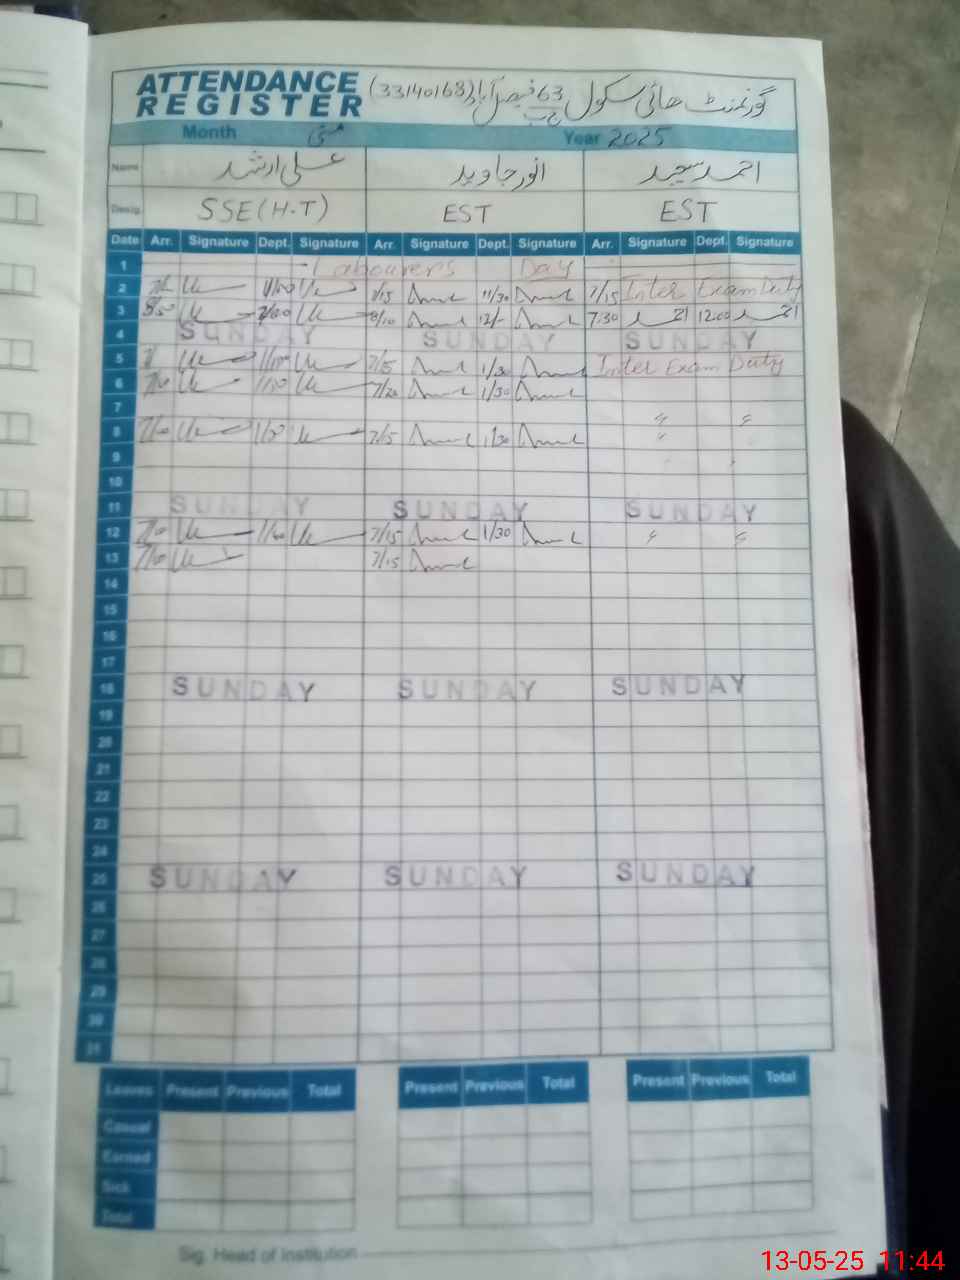 ATTENDANCE REGISTER (33140168) گورنمنٹ ہائی سکول 63 ج ب فیصل آباد
Month مئی Year 2025
Name علی ارشد انور جاوید احمد سعید
Desig. SSE (H-T) EST EST
Date Arr. Signature Dept. Signature Arr. Signature Dept. Signature Arr. Signature Dept. Signature
1 Labourers Day
2 11/30 7/15 Inter Exam Duty
3 8/10 12/- 7:30 12:00
4 SUNDAY SUNDAY SUNDAY
5 7/15 1/30 Inter Exam Duty
6 7/20 1/30
7
8 7/15 1/30
9
10
11 SUNDAY SUNDAY SUNDAY
12 7/15 1/30
13 7/15
14
15
16
17
18 SUNDAY SUNDAY SUNDAY
19
20
21
22
23
24
25 SUNDAY SUNDAY SUNDAY
26
27
28
29
30
31
Leaves Present Previous Total Present Previous Total Present Previous Total
Casual
Earned
Sick
Total
Sig. Head of Institution
13-05-25 11:44